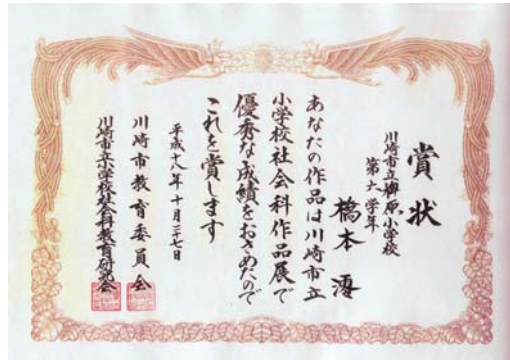 賞状
川崎市立柳原小学校
第六学年
橋本 澪
あなたの作品は川崎市立
小学校社会科作品展で
優秀な成績をおさめたので
これを賞します
平成十八年十月二十七日
川崎市教育委員会
川崎市立小学校社会科教育研究会